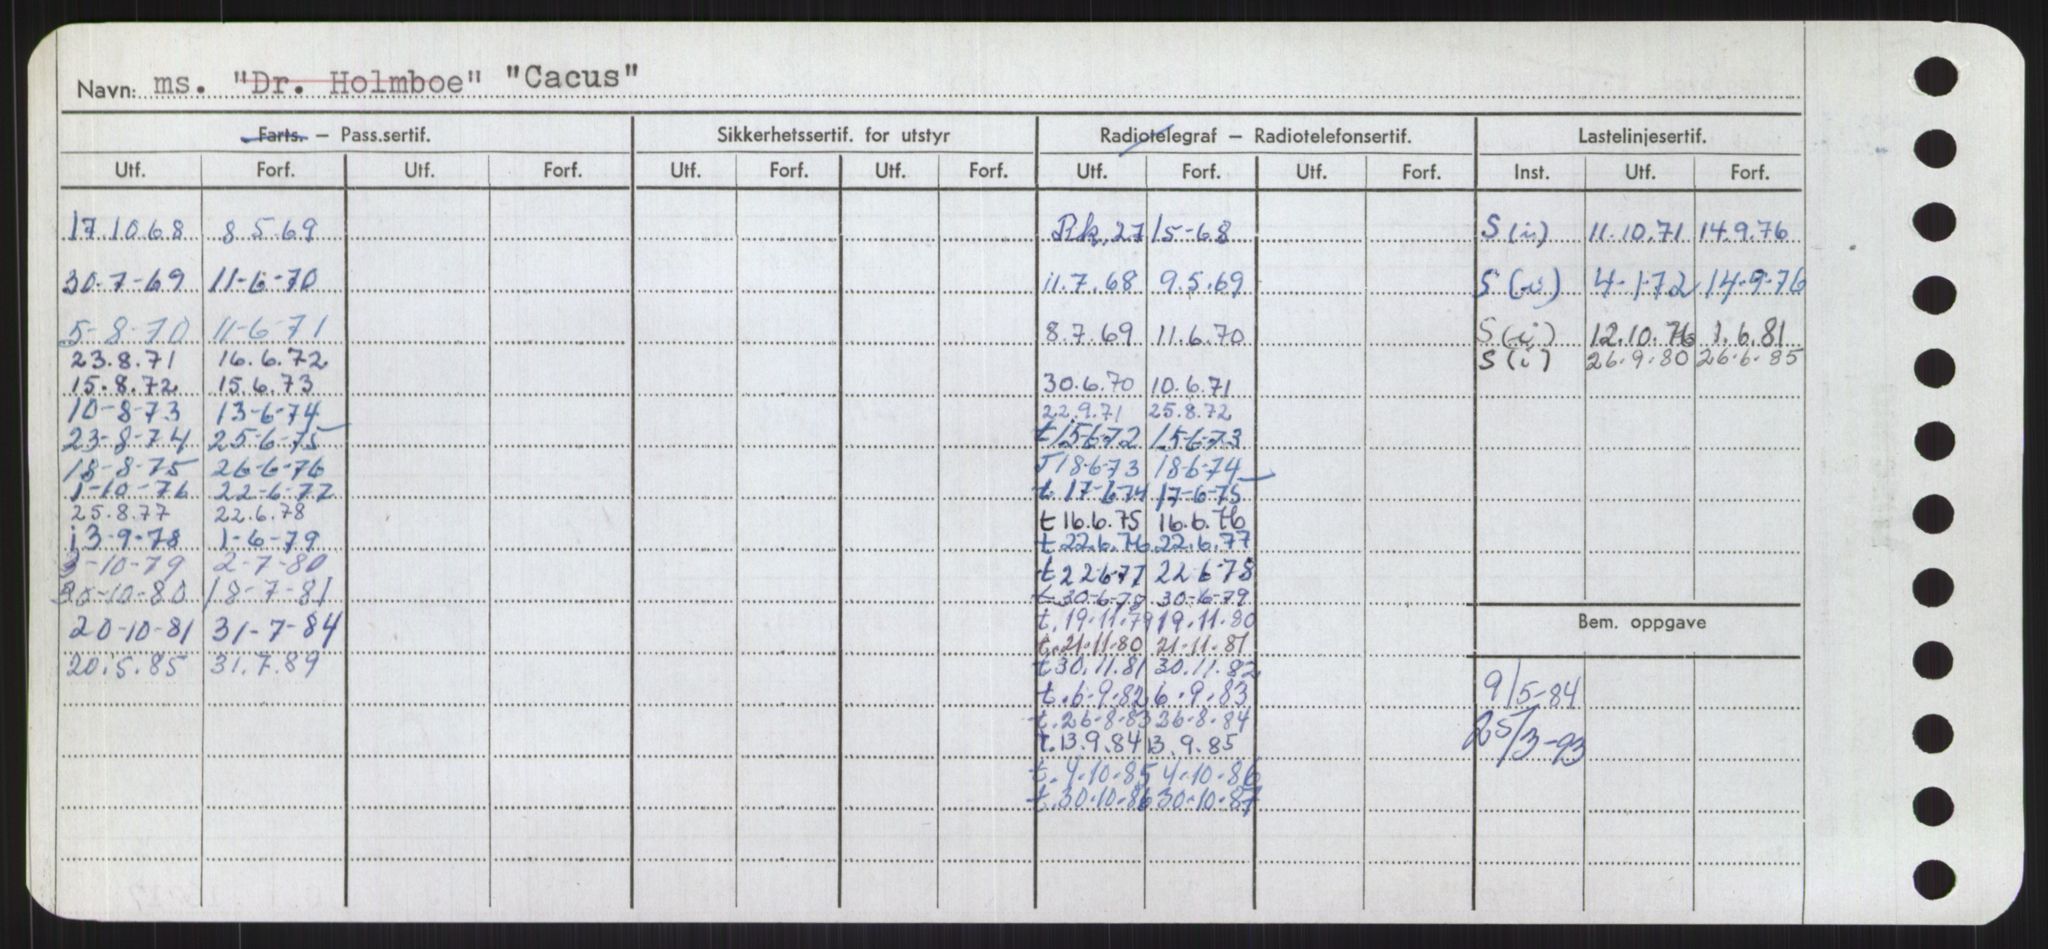 Navn: ms. "Dr. Holmboe" "Cacus"
Farts. – Pass.sertif. Sikkerhetssertif. for utstyr Radiotelegraf – Radiotelefonsertif. Lastelinjesertif.
Utf. Forf. Utf. Forf. Utf. Forf. Utf. Forf. Utf. Forf. Utf. Forf. Inst. Utf. Forf.
17.10.68 8.5.69 Rk. 27/5-68 S (i) 11.10.71 14.9.76
30-7-69 11-6-70 11.7.68 9.5.69 S (i) 4-1-72 14-9-76
5-8-70 11-6-71 8.7.69 11.6.70 S (i) 12.10.76 1.6.81
23.8.71 16.6.72 S (i) 26.9.80 26.6.85
15.8.72 15.6.73 30.6.70 10.6.71
10-8-73 13-6-74 22.9.71 25.8.72
23-8-74 25-6-75 t 15-6-72 15-6-73
18-8-75 26-6-76 T 18-6-73 18-6-74
1-10-76 22-6-77 t 17-6-74 17-6-75
25.8.77 22.6.78 t 16.6.75 16.6.76
13-9-78 1-6-79 t 22.6.76 22.6.77
3-10-79 2-7-80 t 22-6-77 22-6-78
30-10-80 18-7-81 t 30-6-78 30-6-79
20-10-81 31-7-84 t. 19.11.79 19.11.80 Bem. oppgave
t. 21.11.80 21.11.81
20.5.85 31.7.89 t 30.11.81 30.11.82
t. 6-9-82 6-9-83 9/5-84
t. 26-8-83 26-8-84
t. 13.9.84 13.9.85 25/3-93
t. 4-10-85 4-10-86
t. 30-10-86 30-10-87